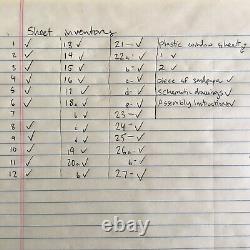 Sheet inventory
1 ✓ 13 ✓ 21 - ✓ plastic window sheeting
2 ✓ 14 ✓ 22a ✓ 1 ✓
3 ✓ 15 ✓ b - ✓ 2 ✓
4 ✓ 16 ✓ c - ✓ piece of sandpaper ✓
5 ✓ 17 ✓ d - ✓ schematic drawings ✓
6 ✓ 18a ✓ e - ✓ Assembly instructions ✓
7 b ✓ 23 - ✓
8 ✓ c ✓ 24 - ✓
9 ✓ d ✓ 25 - ✓
10 ✓ 19 ✓ 26a - ✓
11 ✓ 20a ✓ b - ✓
12 ✓ b ✓ 27 - ✓